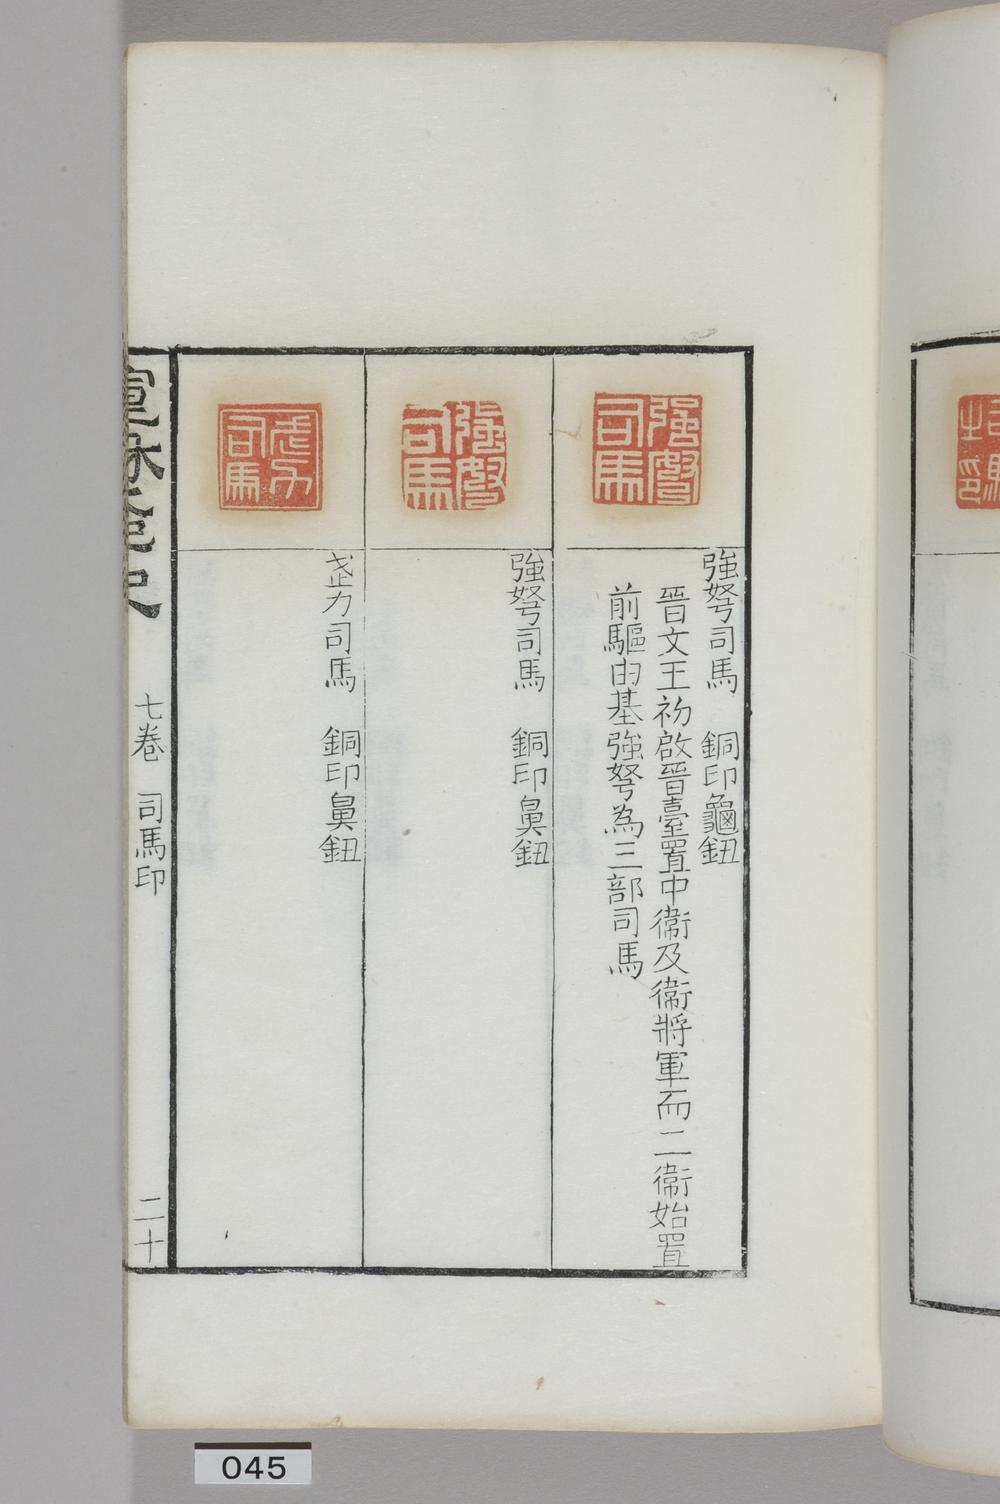 强弩司馬
強弩司馬　銅印龜鈕
晉文王初啟晉臺置中衞及衞將軍而二衞始置
前驅由基強弩為三部司馬
强弩司馬
強弩司馬　銅印鼻鈕
武力司馬
武力司馬　銅印鼻鈕
七卷　司馬印
二十
045